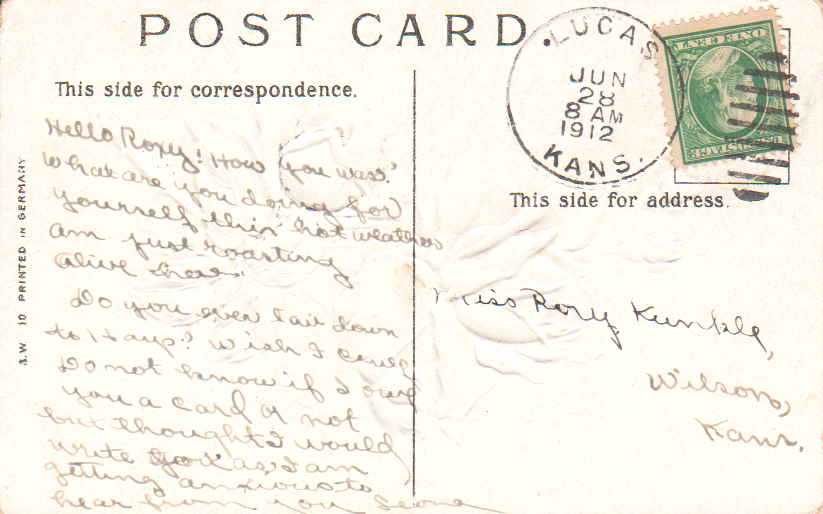 POST CARD.
This side for correspondence.
LUCAS
JUN
28
8 AM
1912
KANS.
ONE CENT
POSTAGE
This side for address.
S.W. 10 PRINTED IN GERMANY
Hello Roxy! How you was?
What are you doing for
yourself this hot weather
am just roasting
alive here.
Do you ever
to ? Wish I could
Do not know if I owe
you a card or not
but thought I would
write you as I am
getting anxious to
hear from you Leona
Miss Roxy Kunkle,
Wilson,
Kans.